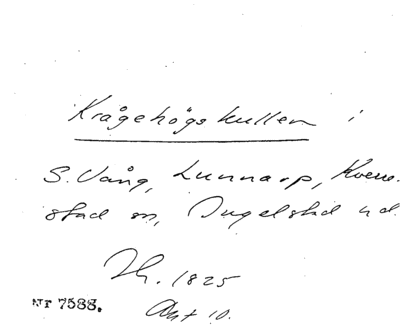 Krågehögskullen i
S. Vång, Lunnarp, Kverre-
stad sn, Ingelstad hd.
Th. 1825
Nr 7588. Ant 10.